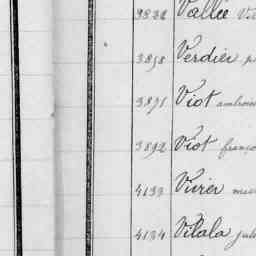 3838 Vallée
3858 Verdier
3871 Viot ambroise
3892 Viot franço
4133 Vivier
4134 Vitala jul